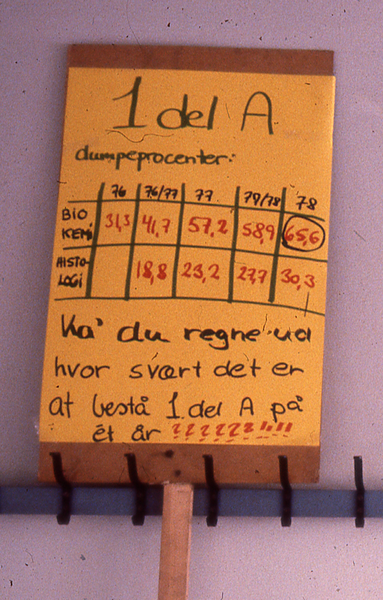 1 del A
dumpeprocenter:
76 76/77 77 77/78 78
BIO KEMI 31,3 41,7 57,2 58,9 65,6
HISTO- LOGI 18,8 23,2 27,7 30,3
Ka' du regne ud
hvor svært det er
at bestå 1. del A på
ét år ??????!!!!